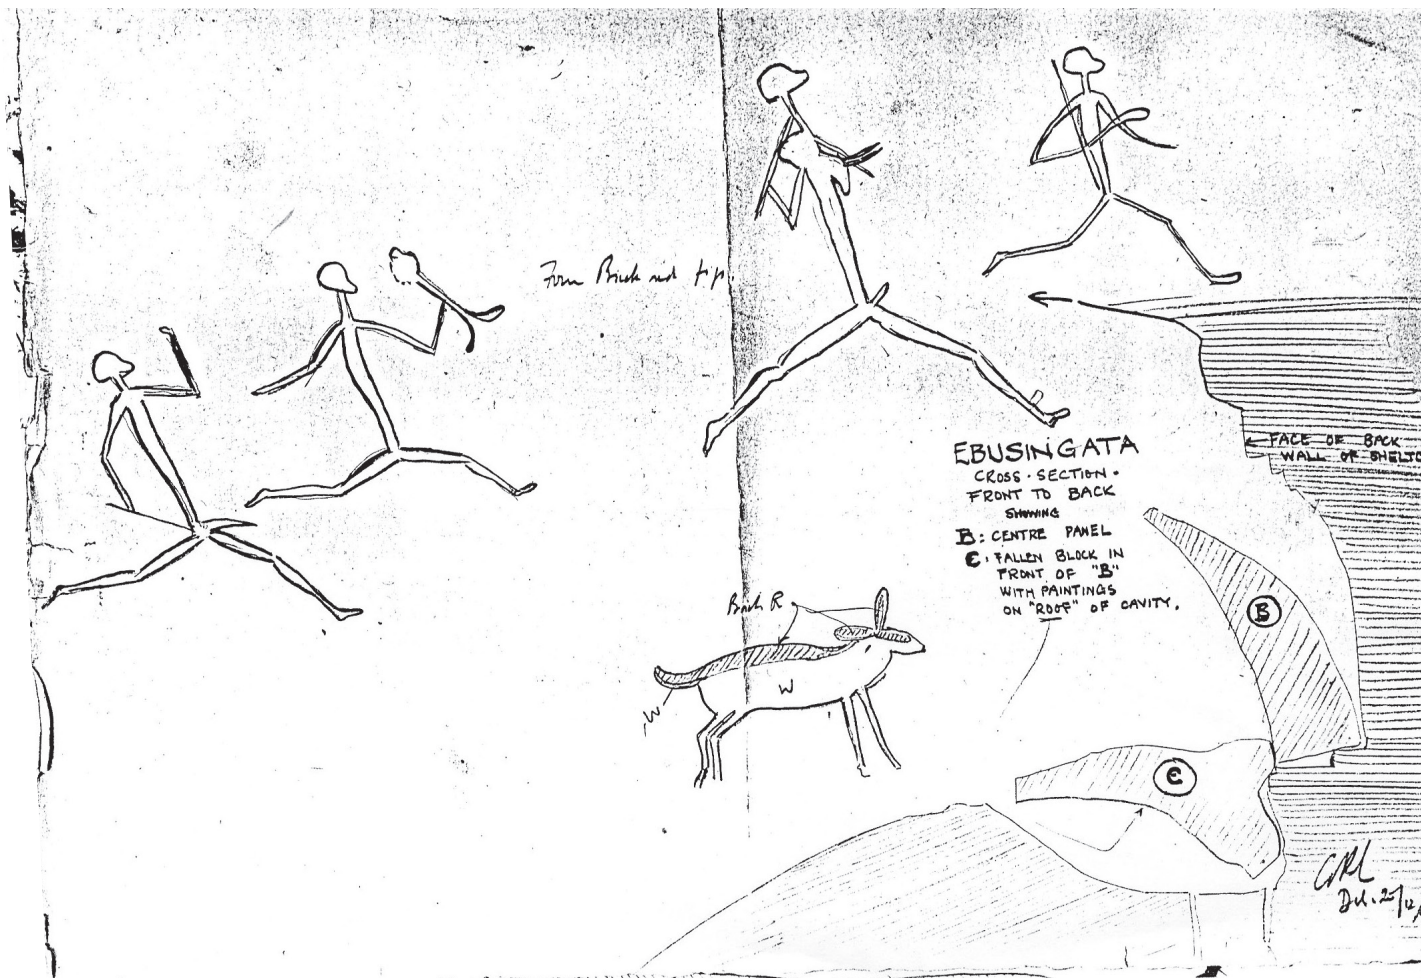 Four Brick red figs
EBUSINGATA
CROSS-SECTION.
FRONT TO BACK
SHOWING
B: CENTRE PANEL
C. FALLEN BLOCK IN
FRONT OF "B"
WITH PAINTINGS
ON "ROOF" OF CAVITY.
FACE OF BACK
WALL OF SHELTE
B
Brick R
W
W
C